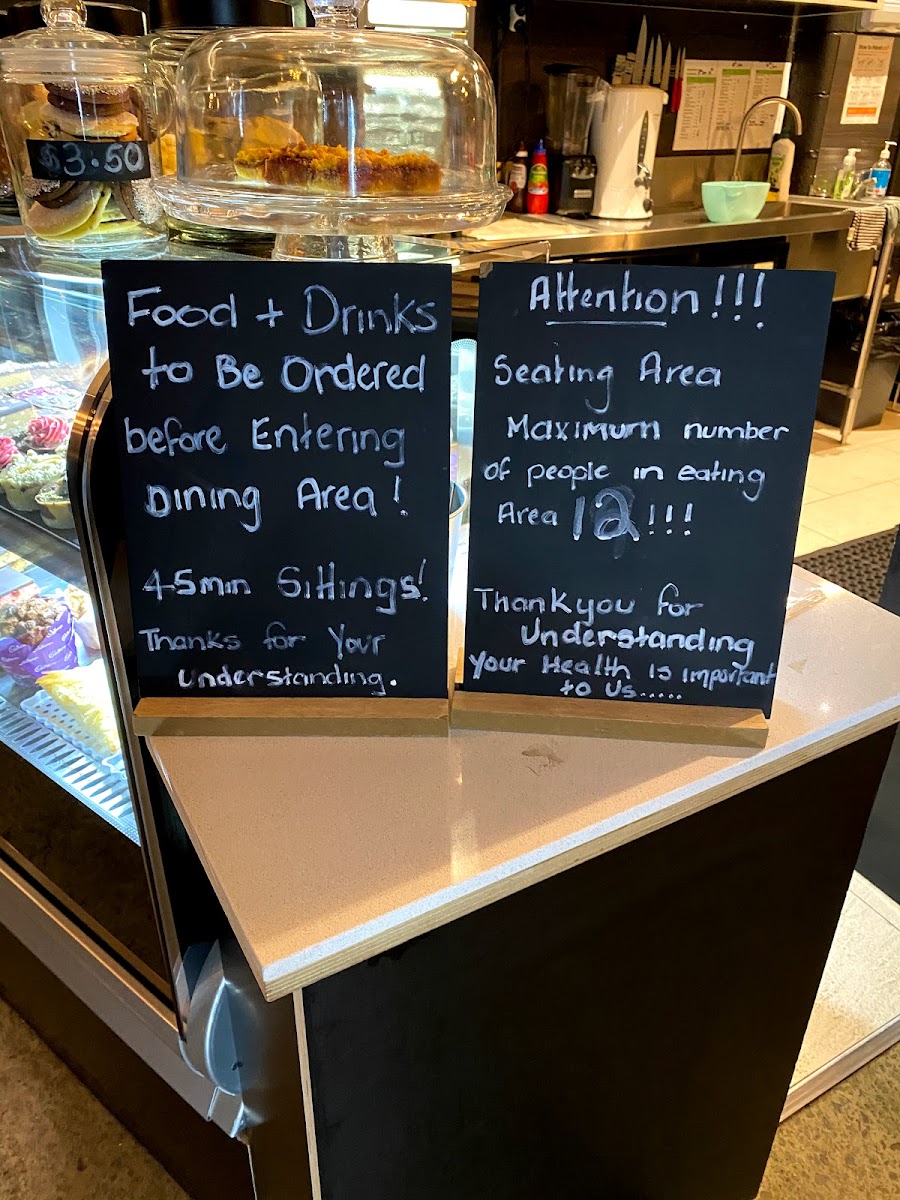 $3.50
Food + Drinks
to Be Ordered
before Entering
Dining Area!
45min Sittings!
Thanks for Your
Understanding.
Attention!!!
Seating Area
Maximum number
of people in eating
Area 12!!!
Thankyou for
Understanding
Your Health is important
to Us.....